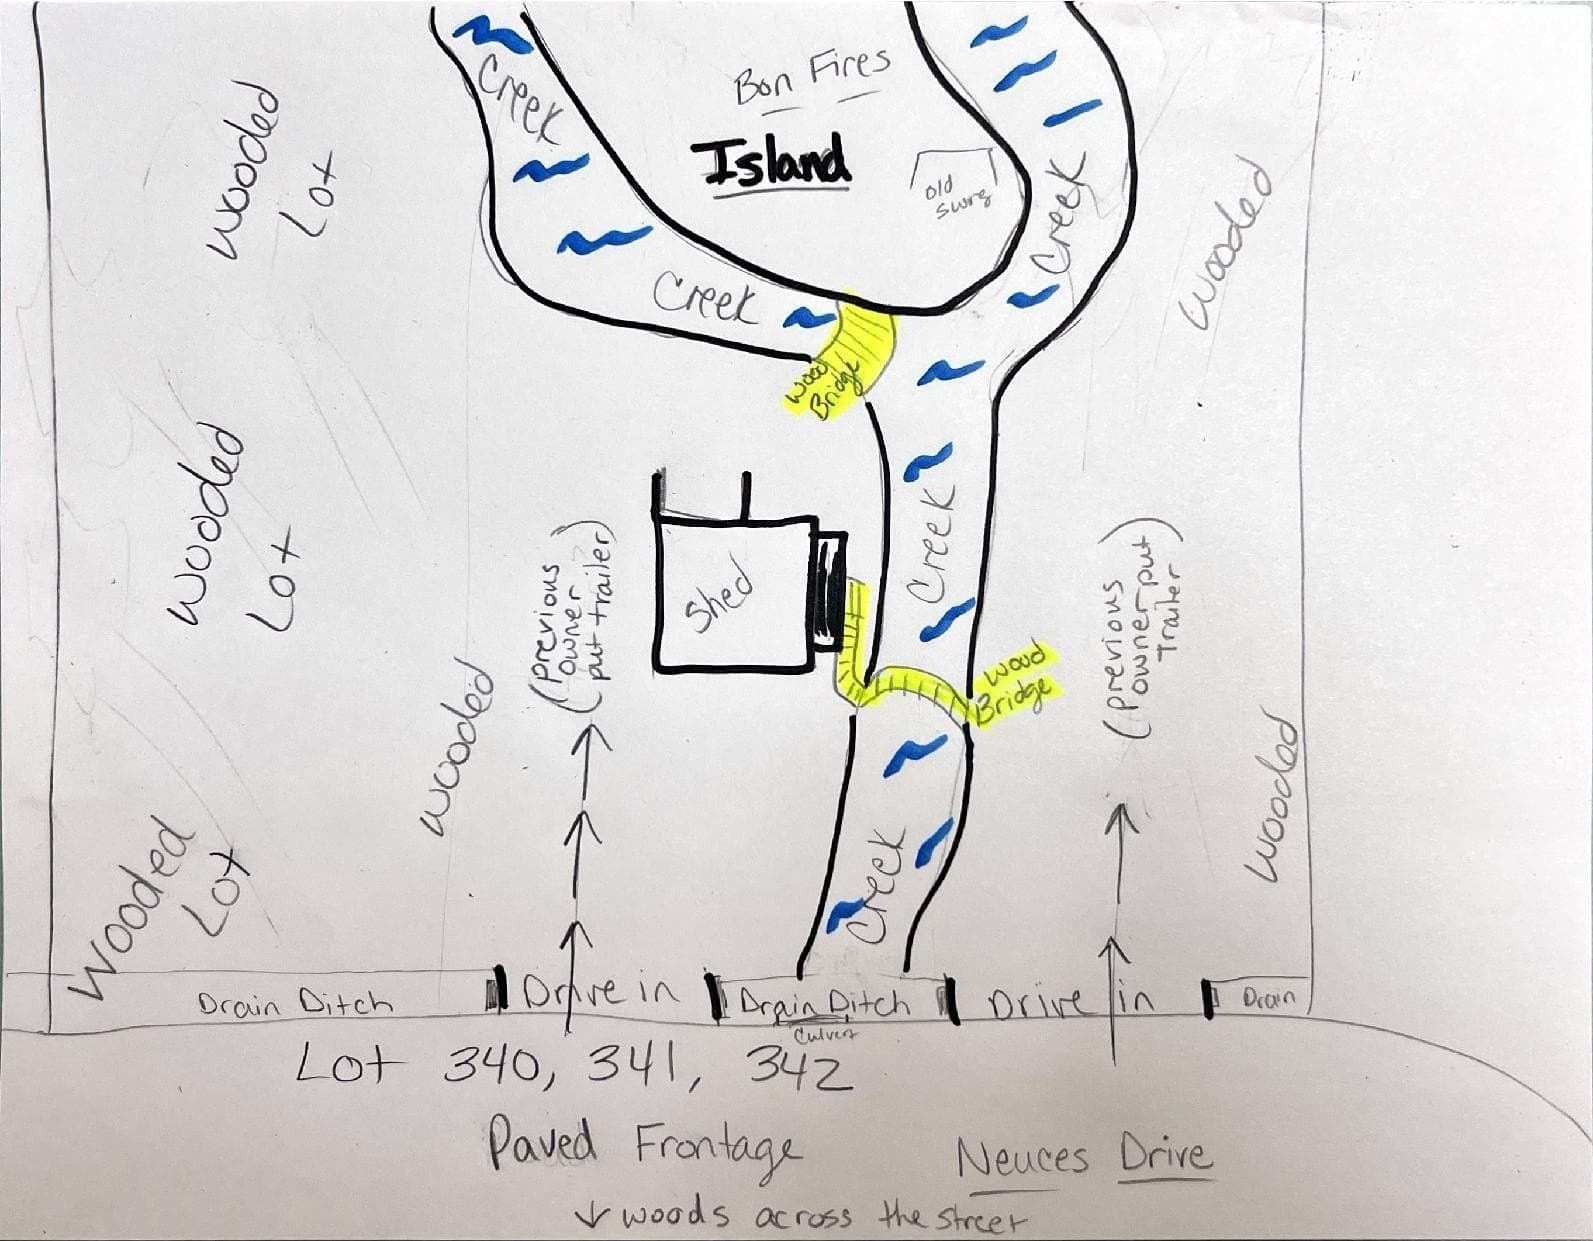 Creek
Bon Fires
Island
old
swing
Creek
Creek
Wooded
Lot
Wooded
Wood
Bridge
Wooded
Lot
(Previous
owner
put trailer)
Shed
Creek
(previous
owner put
Trailer)
Wood
Bridge
Wooded
Wooded
Wooded
Lot
Creek
Drain Ditch
Drive in
Drain Ditch
Culvert
Drive in
Drain
Lot 340, 341, 342
Paved Frontage
Neuces Drive
↓ woods across the street